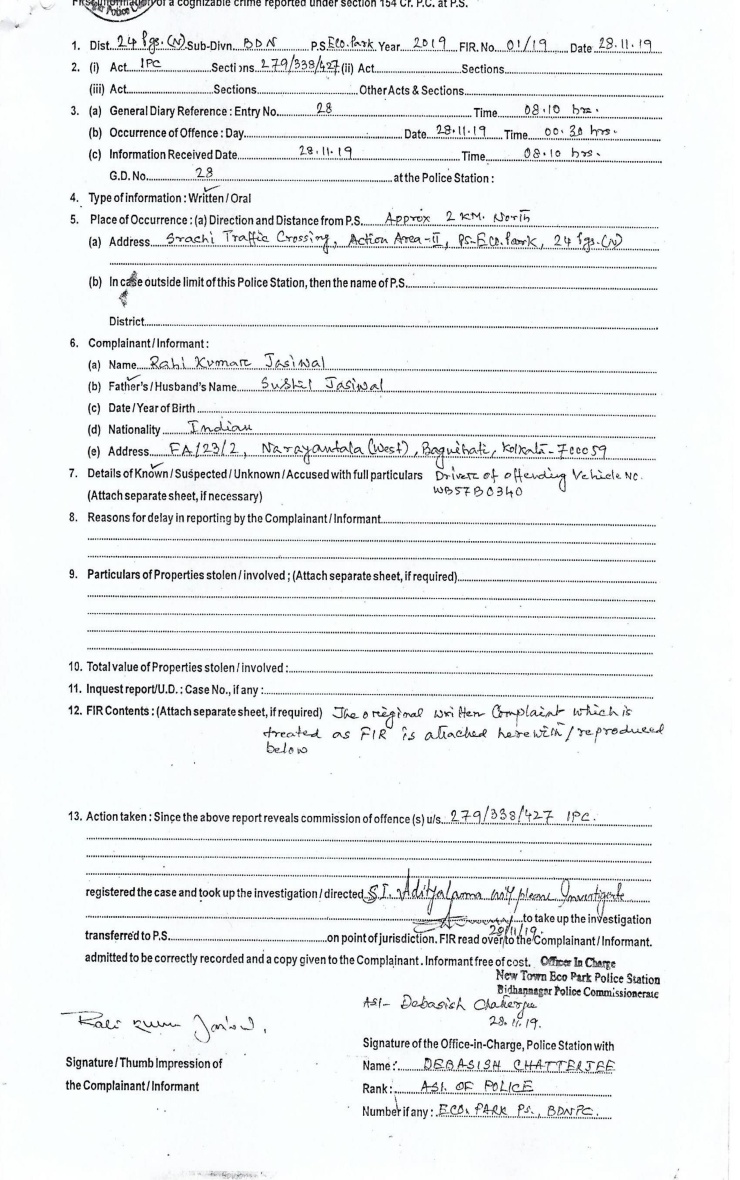 First Information of a cognizable crime reported under section 154 Cr. P.C. at P.S.
1. Dist. 24 Pgs.(N) Sub-Divn. BDN P.S Eco.Park Year 2019 FIR. No. 01/19 Date 28.11.19
2. (i) Act IPC Sections 279/338/427 (ii) Act Sections
(iii) Act Sections Other Acts & Sections
3. (a) General Diary Reference : Entry No. 28 Time 08.10 hrs.
(b) Occurrence of Offence : Day Date 28.11.19 Time 00.30 hrs.
(c) Information Received Date 28.11.19 Time 08.10 hrs.
G.D. No. 28 at the Police Station :
4. Type of information : Written / Oral
5. Place of Occurrence : (a) Direction and Distance from P.S. Approx 2 KM. North
(a) Address Srachi Traffic Crossing, Action Area-II, PS-Eco.Park, 24 Pgs.(N)
(b) In case outside limit of this Police Station, then the name of P.S.
District
6. Complainant / Informant :
(a) Name Rahi Kumar Jasiwal
(b) Father's / Husband's Name Sushil Jasiwal
(c) Date / Year of Birth
(d) Nationality Indian
(e) Address FA/23/2, Narayantala (West), Baguihati, Kolkata-700059
7. Details of Known / Suspected / Unknown / Accused with full particulars Driver of offending Vehicle No.
(Attach separate sheet, if necessary) WB57B0340
8. Reasons for delay in reporting by the Complainant / Informant
9. Particulars of Properties stolen / involved ; (Attach separate sheet, if required)
10. Total value of Properties stolen / involved :
11. Inquest report/U.D. : Case No., if any :
12. FIR Contents : (Attach separate sheet, if required) The original written Complaint which is
treated as FIR is attached herewith / reproduced
below
13. Action taken : Since the above report reveals commission of offence (s) u/s. 279/338/427 IPC.
registered the case and took up the investigation / directed S.I. please Investigate
to take up the investigation
28/11/19.
transferred to P.S. on point of jurisdiction. FIR read over to the Complainant / Informant.
admitted to be correctly recorded and a copy given to the Complainant. Informant free of cost. Officer In Charge
New Town Eco Park Police Station
Bidhannagar Police Commissionerate
ASI- Debasish Chatterjee
28.11.19.
Signature of the Office-in-Charge, Police Station with
Signature / Thumb Impression of
the Complainant / Informant
Name : DEBASISH CHATTERJEE
Rank : ASI. OF POLICE
Number if any : ECO. PARK PS., BDNPC.